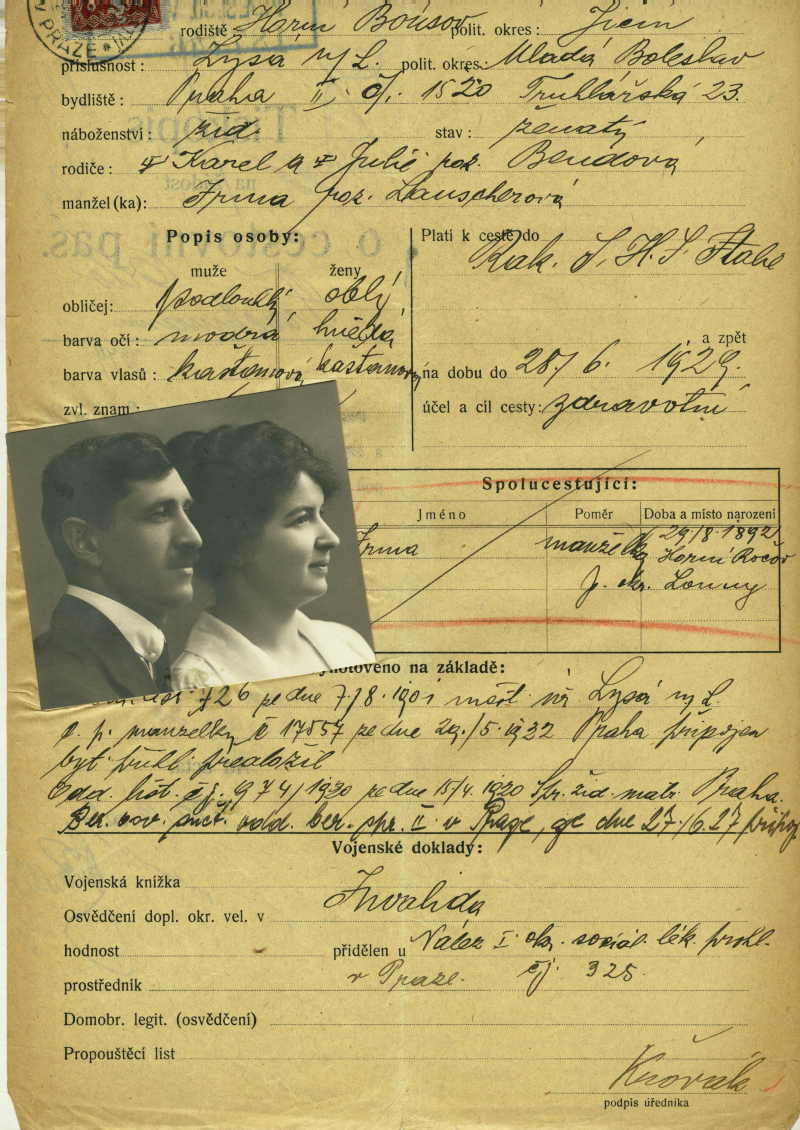 PRAZE
rodiště Horní Bousov polit. okres: Jičín
příslušnost: Lysá n/L. polit. okres: Mladá Boleslav
bydliště: Praha II. čp. 1520 Truhlářská 23.
náboženství: žid. stav: ženatý
rodiče: Karel a Julie roz. Bendová
manžel(ka): Irma roz. Lauscherová
Popis osoby:
muže ženy
obličej: podlouhlý oblý
barva očí: modrá hnědá
barva vlasů: kaštanová kaštanová
zvl. znam.:
Platí k cestě do
Rak. S. H. S. Italie
a zpět
na dobu do 28/6. 1929.
účel a cíl cesty: zdravotní
Spolucestující:
Jméno Poměr Doba a místo narození
Irma manželka 29/8. 1892
Horní Ročov
p. okr. Louny
yhotoveno na základě:
726 ze dne 7/8. 1901 měst. úř. Lysá n/L.
d. p. manželky č 17557 ze dne 29./5. 1922 Praha připojen
byt. přihl. předložil
odd. list. č.j. 974/1920 ze dne 15/4. 1920 Spr. žid. matr. Praha.
Ber. odd. ber. spr. II. v Praze, ze dne 27./6. 27
Vojenské doklady:
Vojenská knížka
Osvědčení dopl. okr. vel. v Invalida
hodnost přidělen u Nález I. okr. sociál. lék. prohl.
prostředník v Praze. čj. 325.
Domobr. legit. (osvědčení)
Propouštěcí list
podpis úředníka